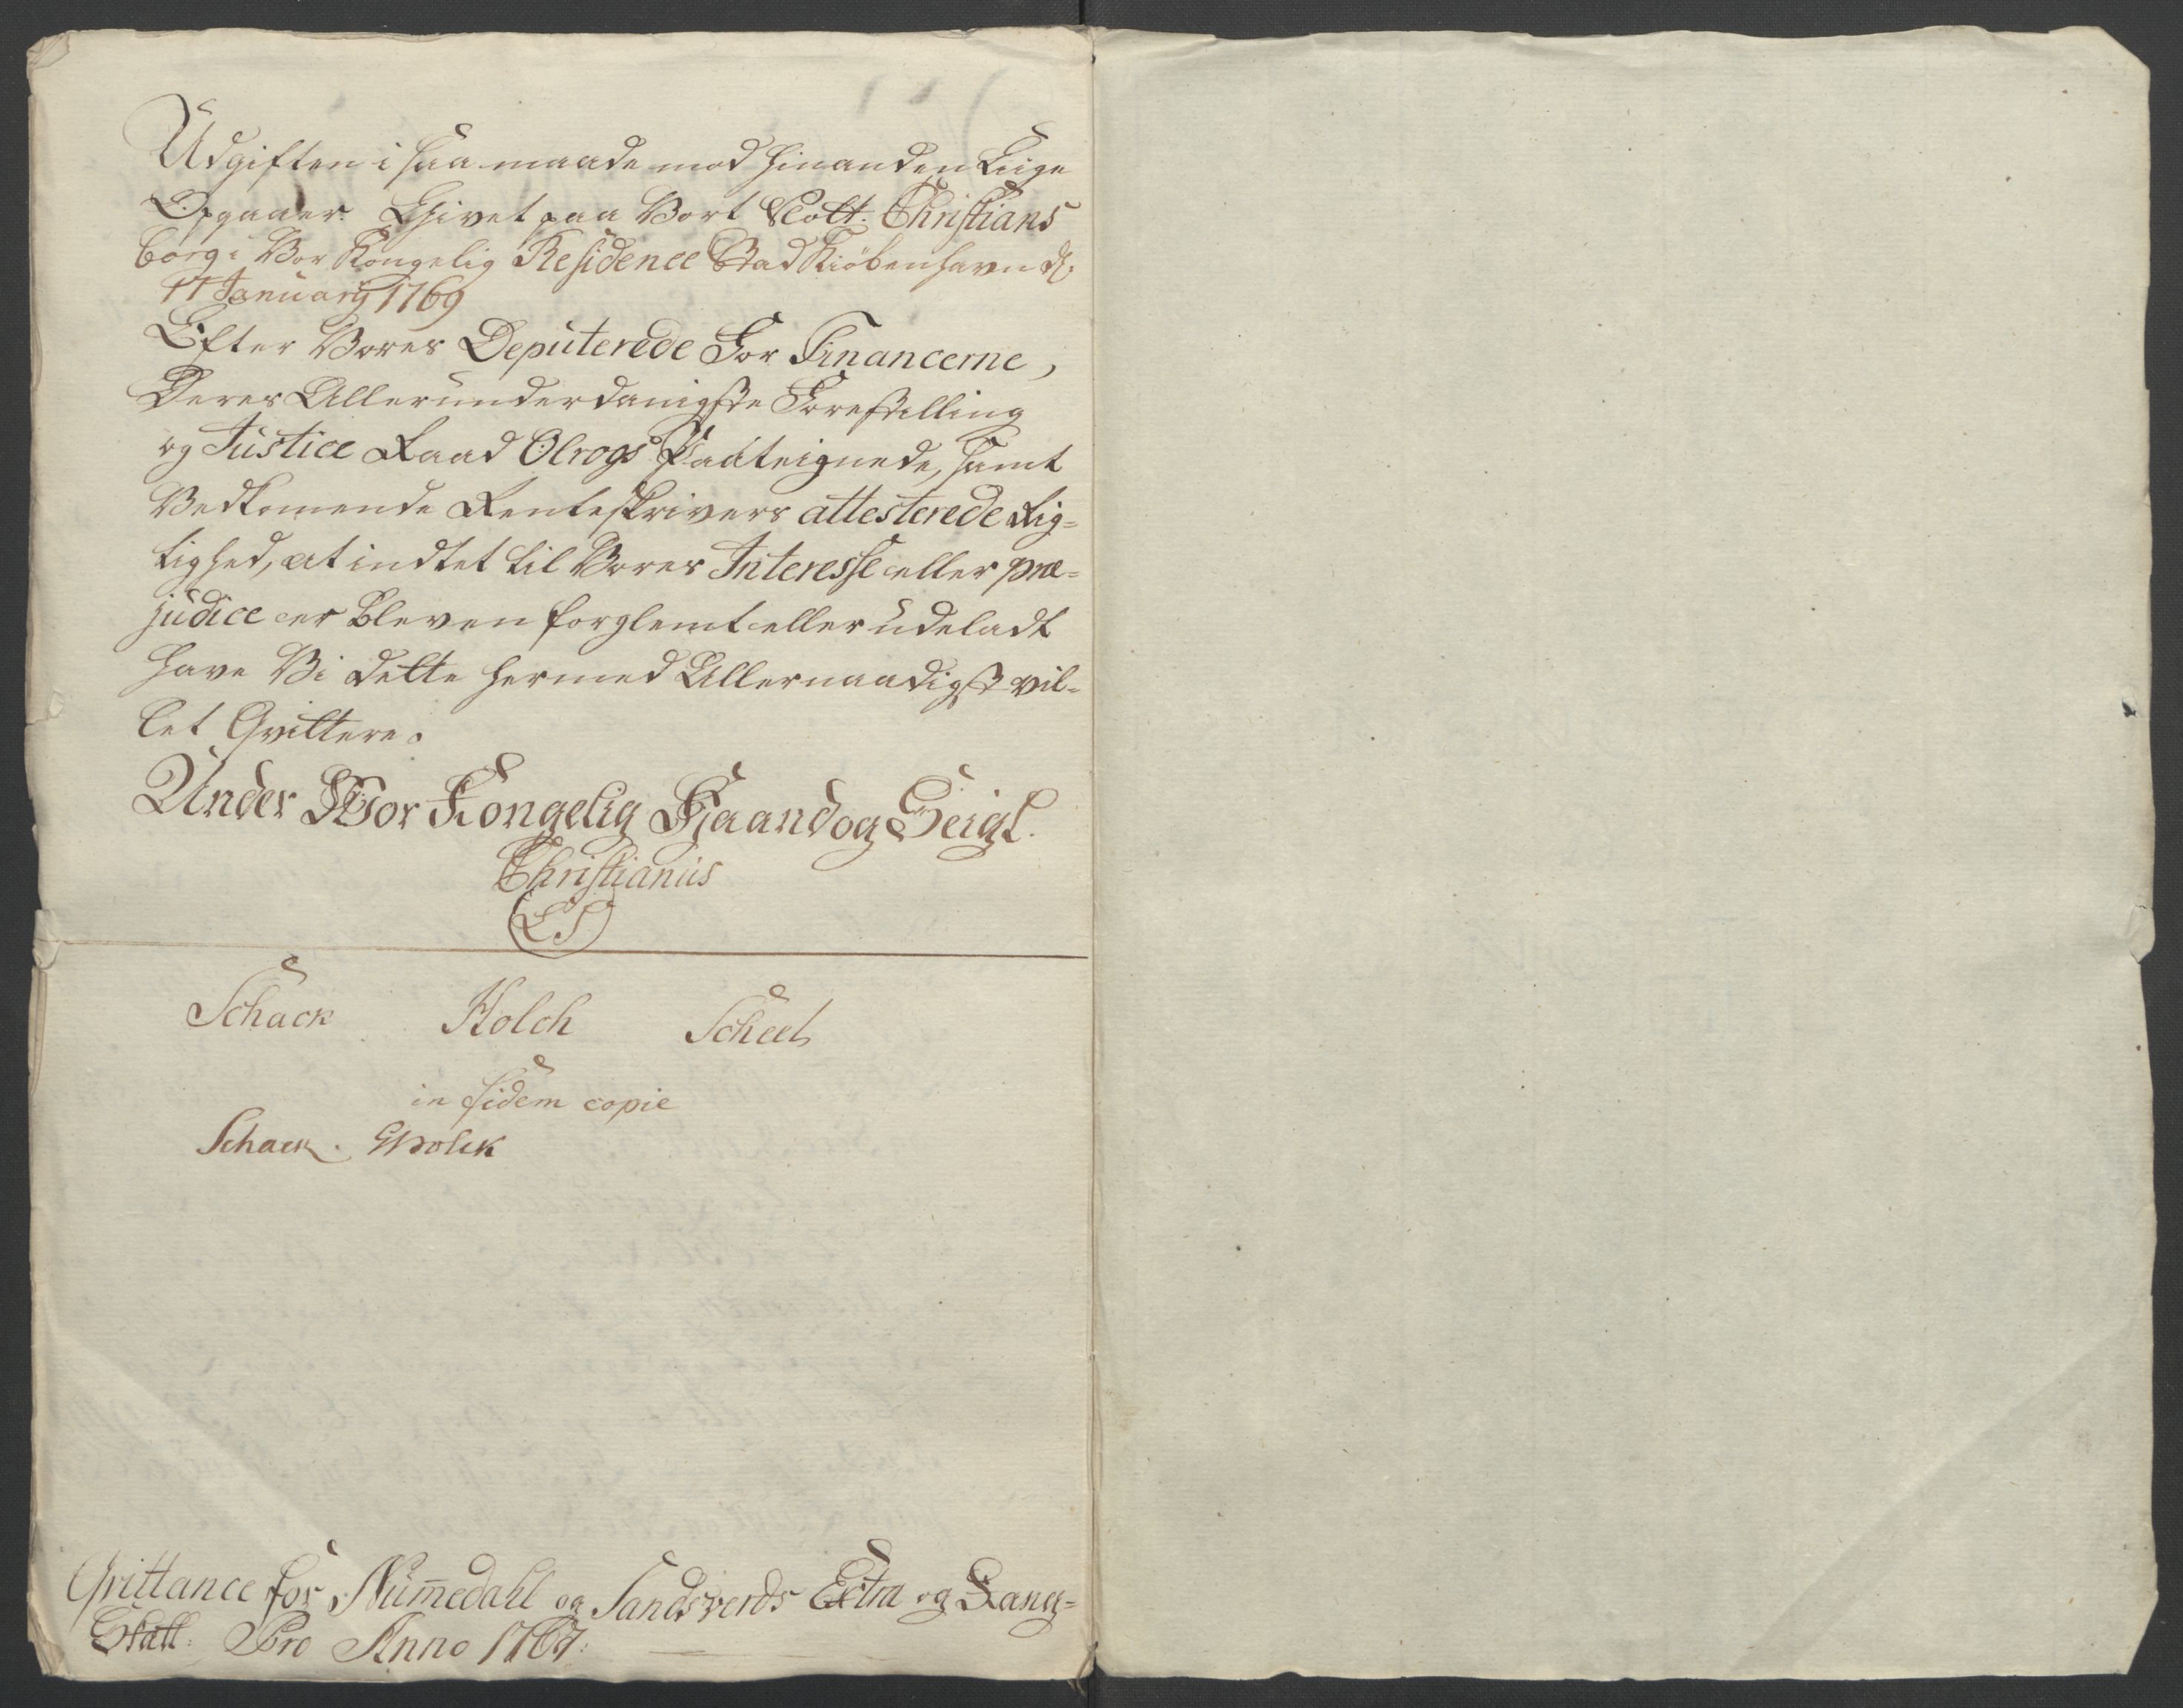 Udgiften i saa maade mod hinanden Liige
Opgaaer. Givet paa Vort Slott Christians
borg i Vor Kongelig Residence Stad Kiöbenhavn d.
11 January 1769
Efter Vores Deputerede For Financerne,
Deres Allerunderdanigste Forestilling
og Justice Raad Olrogs Paateignede, samt
Vedkomende Renteskrivers attesterede Rig-
tighed, at indtet til Vores Interesse eller præ-
judice er bleven forglemt eller udeladt
have Vi dette hermed Allernaadigst vil-
let Qvittere.
Under Vor Kongelig Haand og Seigl.
Christianus
LS
Schack Holck Scheel
in fidem copie
Schack. Holck
Qvittance for Nummedahl og Sandsverds Extra og Rang-
Skatt. Pro Anno 1767.